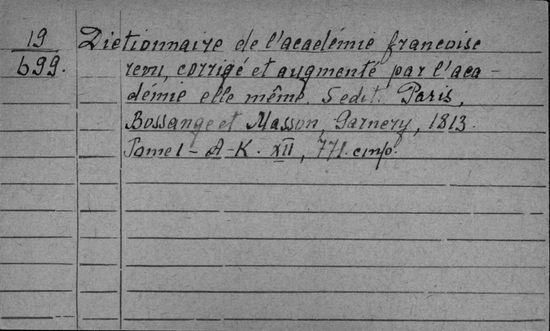 19
699.
Dictionnaire de l'académie françoise
revu, corrigé et augmenté par l'aca-
démie elle même. 5 edit. Paris,
Bossange et Masson, Garnery, 1813.
Tome I - A-K. XII, 771. стр.